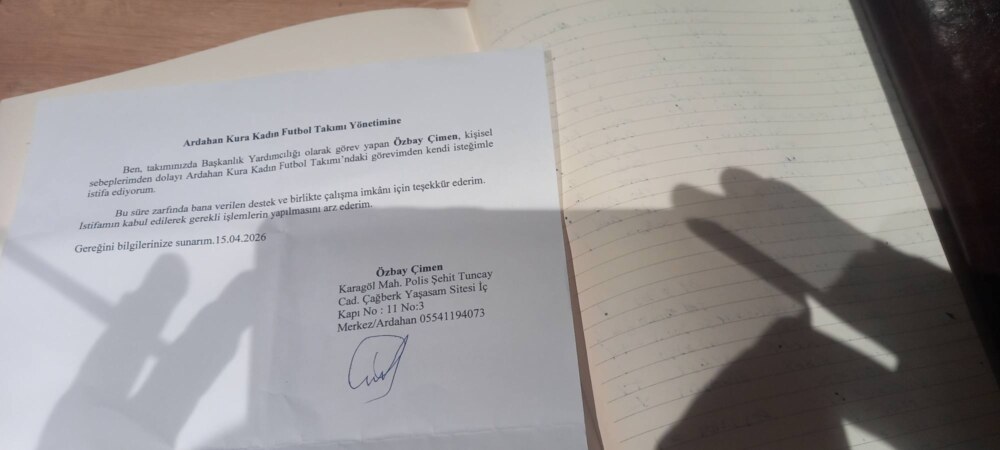 Ardahan Kura Kadın Futbol Takımı Yönetimine
Ben, takımınızda Başkanlık Yardımcılığı olarak görev yapan Özbay Çimen, kişisel
sebeplerimden dolayı Ardahan Kura Kadın Futbol Takımı'ndaki görevimden kendi isteğimle
istifa ediyorum.
Bu süre zarfında bana verilen destek ve birlikte çalışma imkânı için teşekkür ederim.
İstifamın kabul edilerek gerekli işlemlerin yapılmasını arz ederim.
Gereğini bilgilerinize sunarım.15.04.2026
Özbay Çimen
Karagöl Mah. Polis Şehit Tuncay
Cad. Çağberk Yaşasam Sitesi İç
Kapı No : 11 No:3
Merkez/Ardahan 05541194073